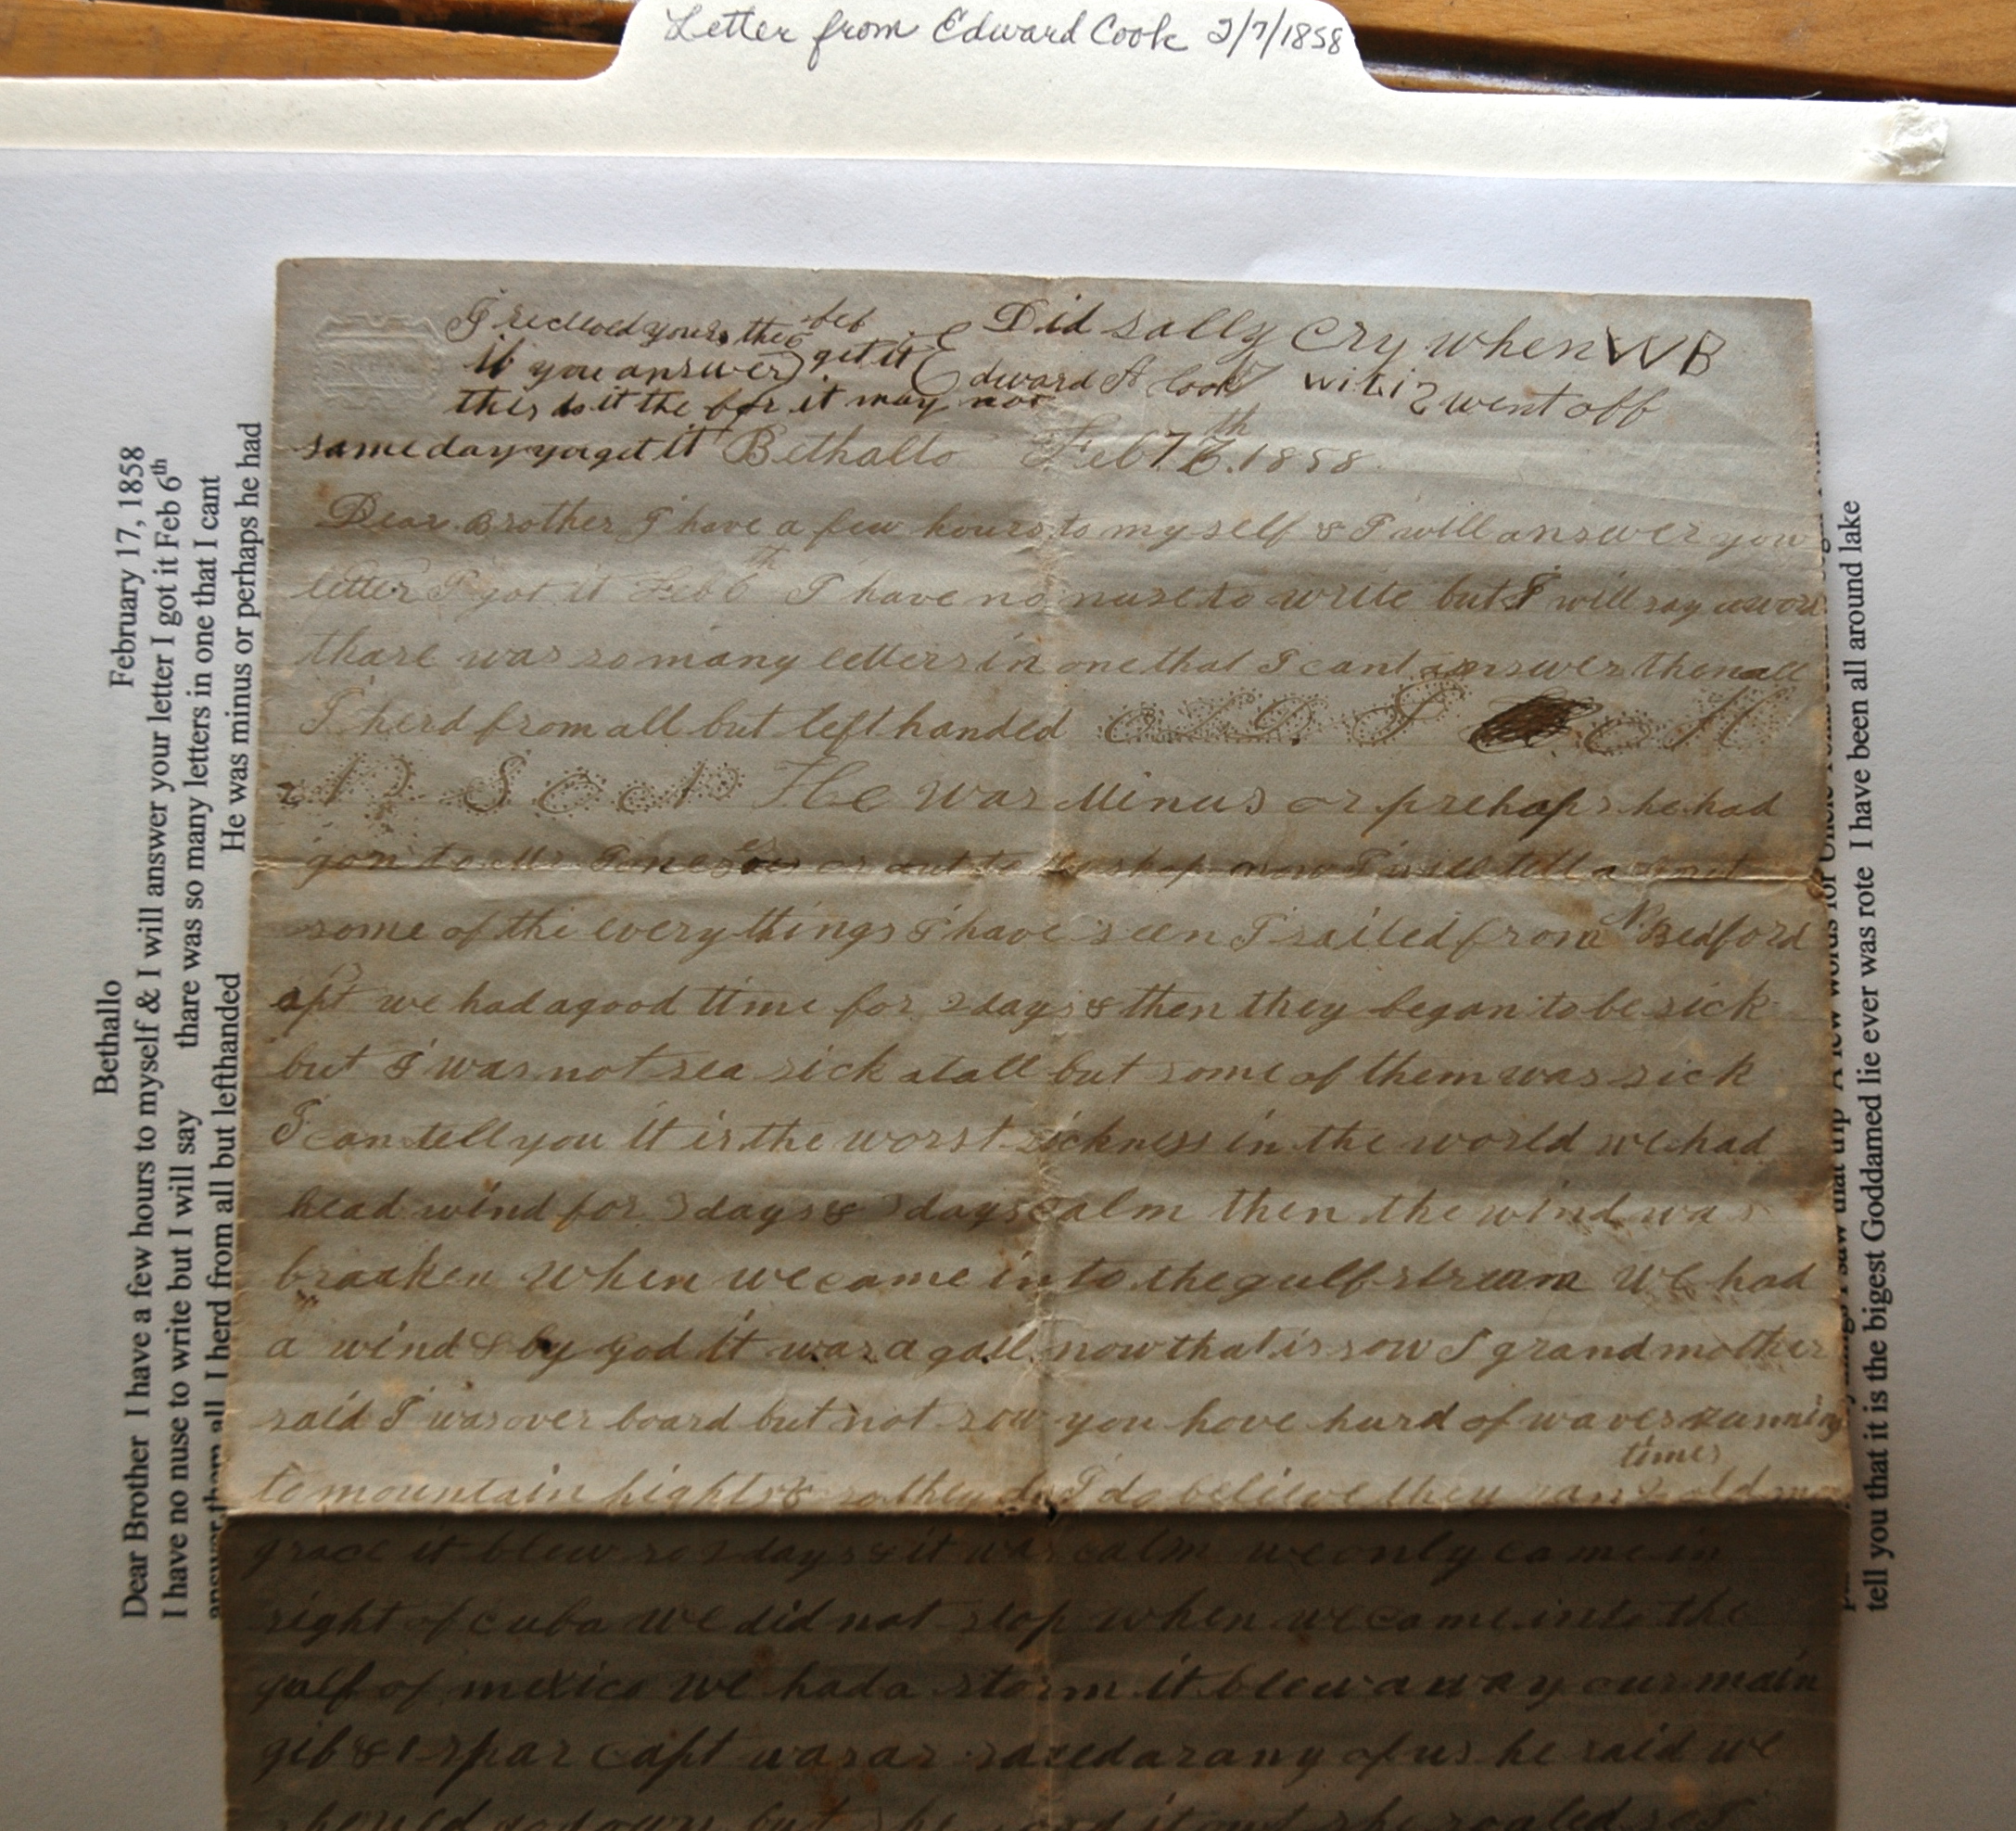 Letter from Edward Cook 2/7/1858
I recieved yours the 6 feb
if you answer get it
this do it the for it may not
same day you get it
Edward A Cook
Did sally cry when WB
went off
Bethalto Feb 7th 1858
Dear Brother I have a few hours to my self & I will answer you
letter I got it Feb 6th I have no nuse to write but I will say a word
thare was so many letters in one that I cant answer them all
I herd from all but left handed
He was Minus or prehaps he had
gon to or out to shop now I will tell about
some of the everythings I have seen I sailed from N. Bedford
we had a good time for 2 days & then they began to be sick
but I was not sea sick atall but some of them was sick
I can tell you it is the worst sickness in the world we had
head wind for 3 days & days calm then the wind was
braaken when we came in to the gulf stream we had
a wind & by god it was a gall now that is sow I grandmother
said I was over board but not sow you hove hurd of waves running
to mountain hights & so they do I do believe they ran 2 times old
grace it blew so days & it was calm we only came in
sight of cuba we did not stop when we came into the
gulf of mexico we had a storm it blew away our main
gib & 1 spar capt was as scaredasany of us he said we
should go down but she
Bethallo February 17, 1858
Dear Brother I have a few hours to myself & I will answer your letter I got it Feb 6th
I have no nuse to write but I will say thare was so many letters in one that I cant
answer them all I herd from all but lefthanded He was minus or perhaps he had
tell you that it is the biggest Goddamed lie ever was rote I have been all around lake